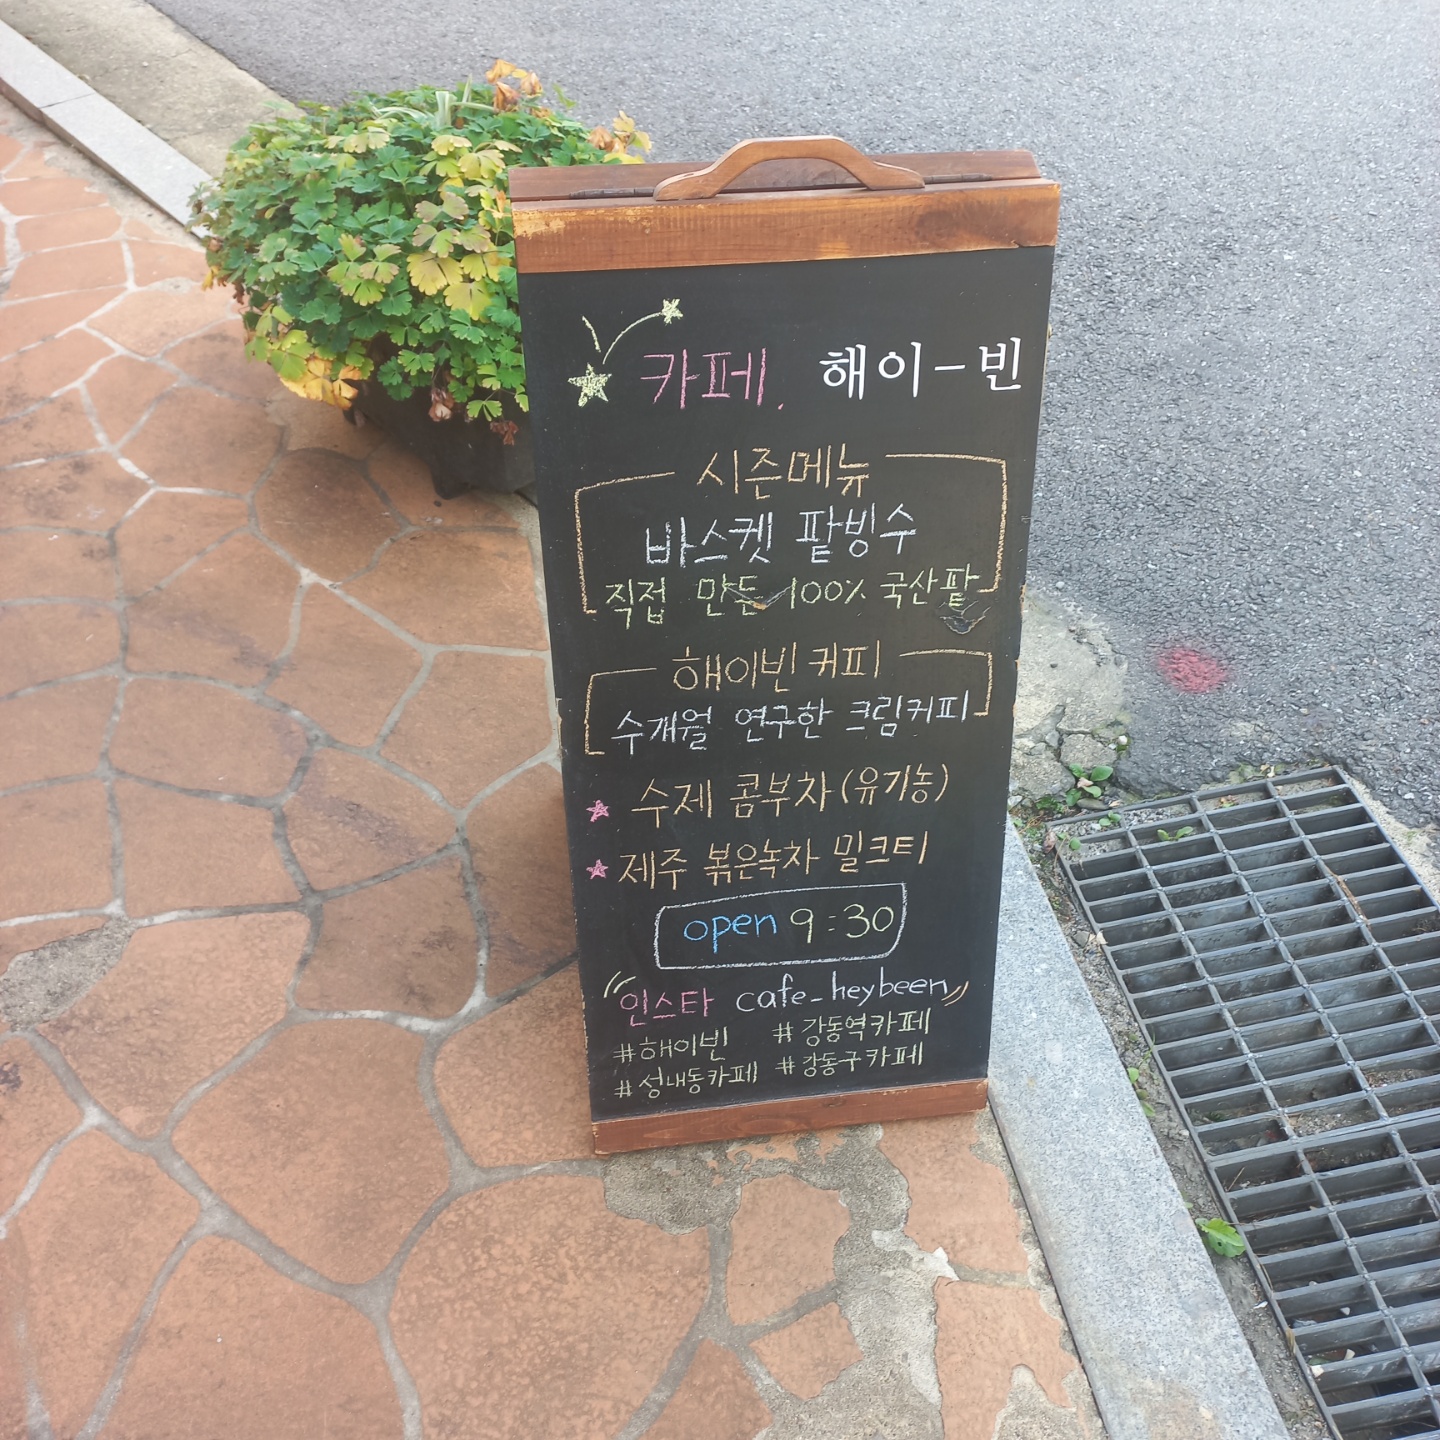 카페. 해이-빈
시즌메뉴
바스켓 팥빙수
직접 만든 100% 국산팥
해이빈 커피
수개월 연구한 크림커피
수제 콤부차(유기농)
제주 볶은녹차 밀크티
open 9:30
"인스타 cafe_heybeen"
#해이빈 #강동역카페
#성내동카페 #강동구카페